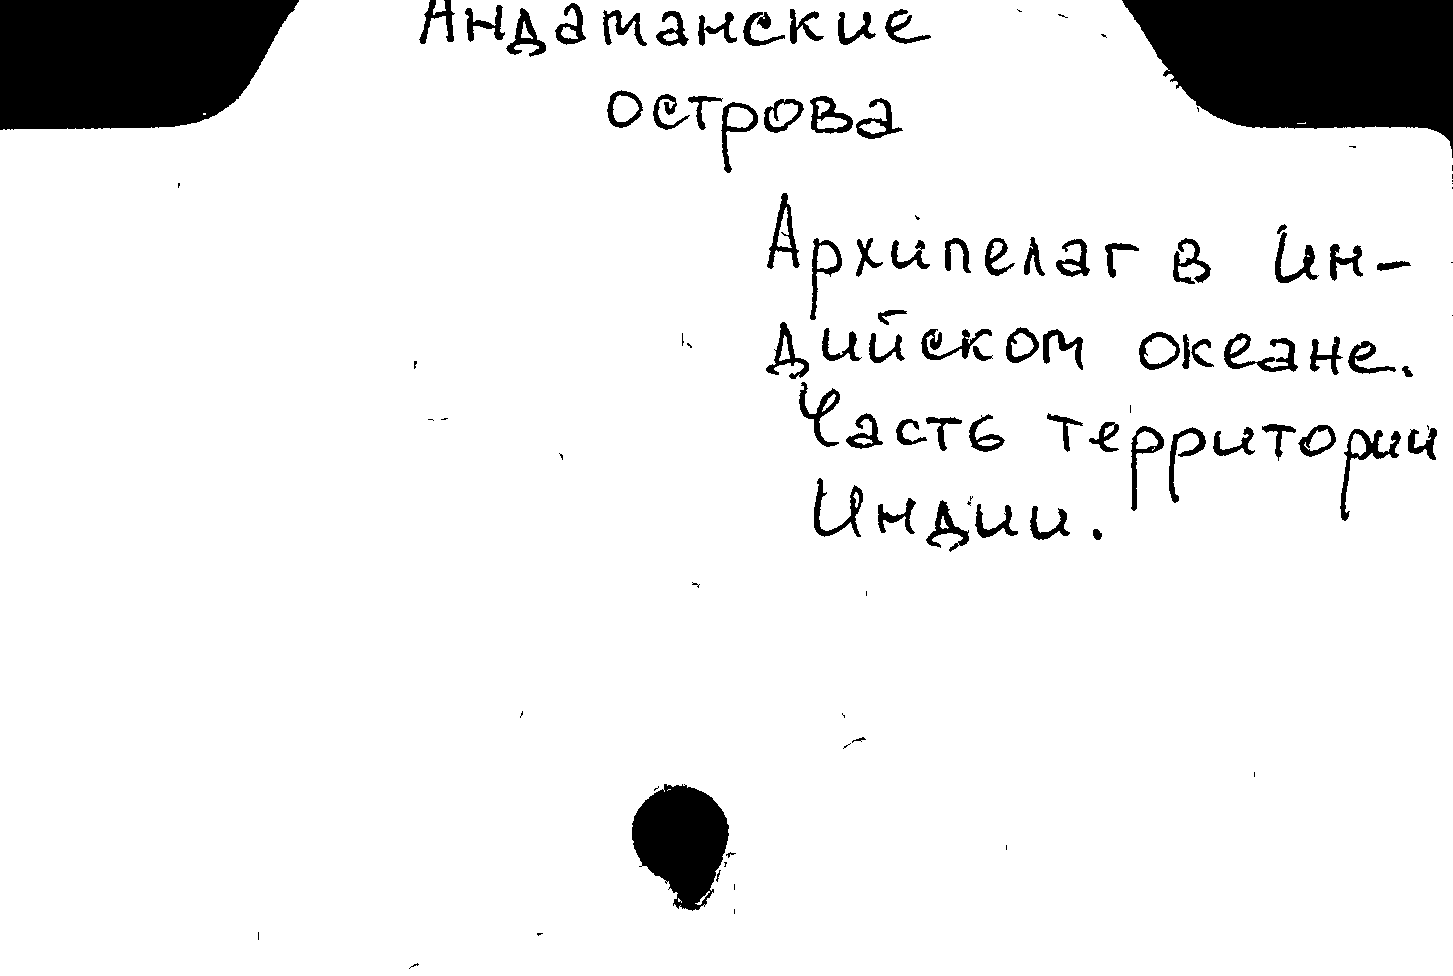 Андаманские
острова
Архипелаг в Ин-
дийском океане.
Часть территории
Индии.